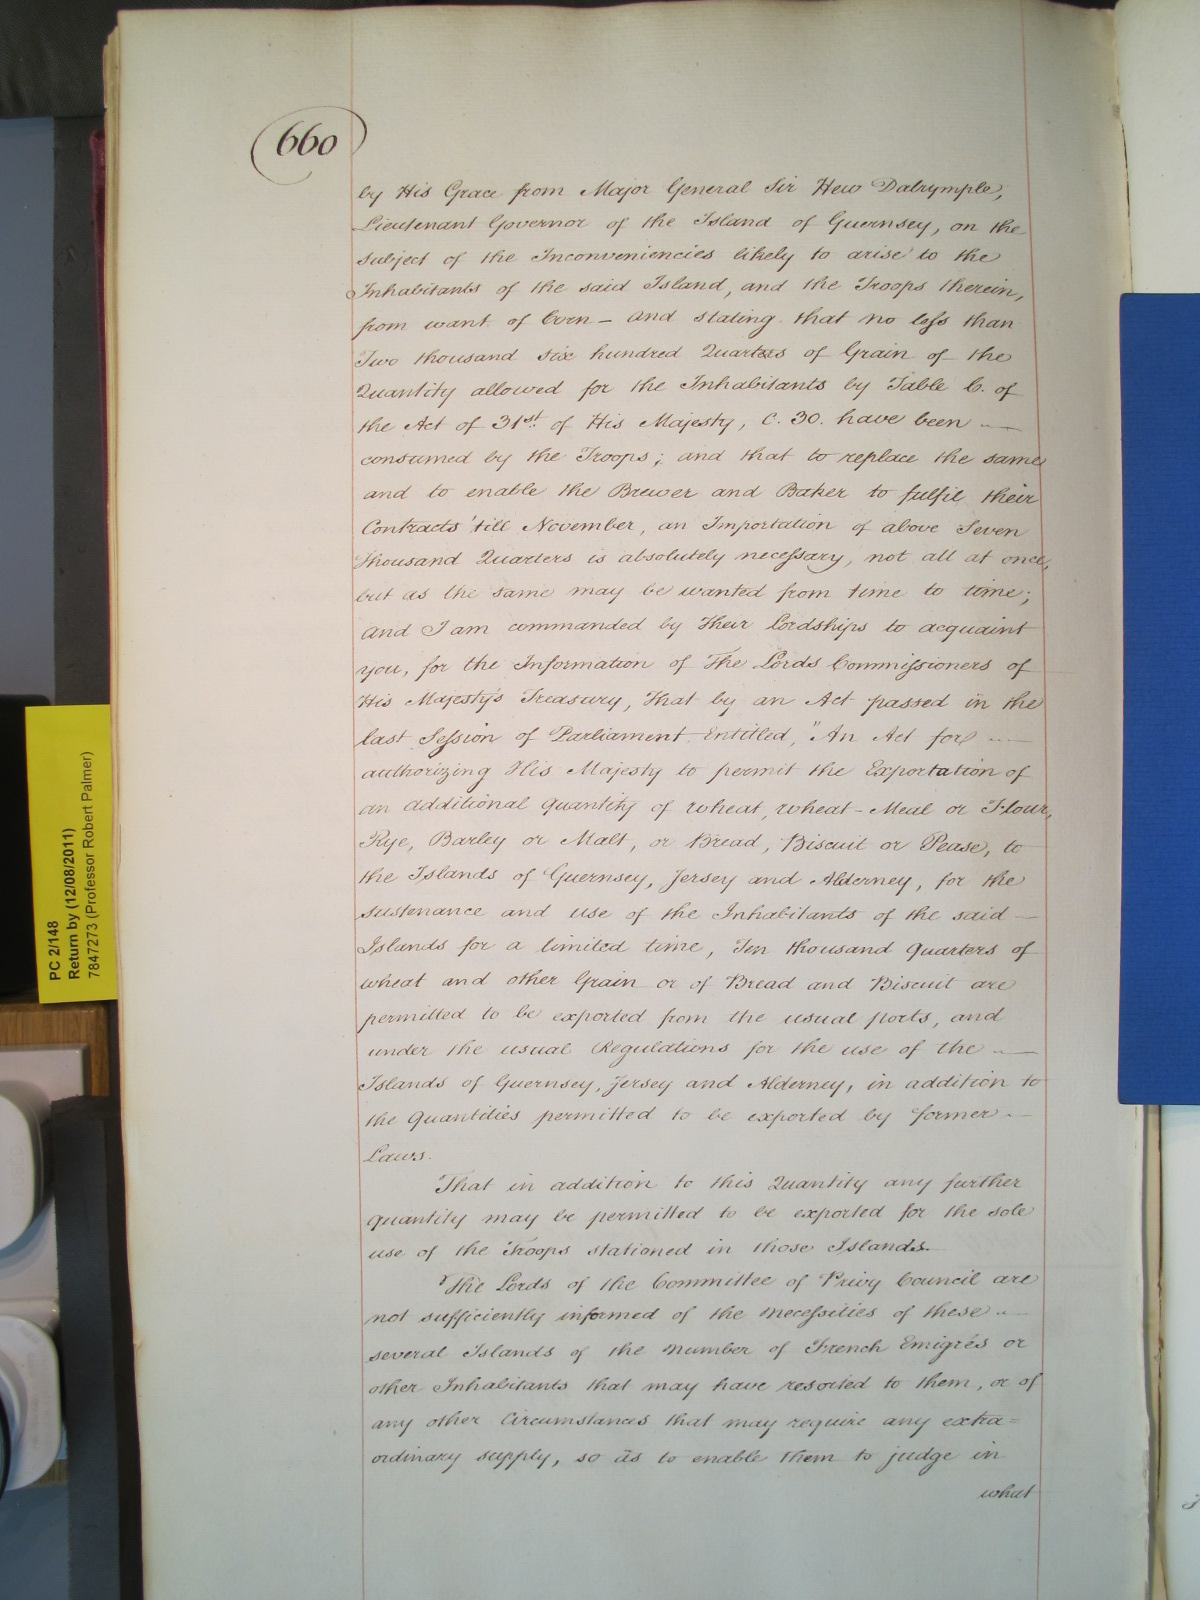 660
by His Grace from Major General Sir Hew Dalrymple,
Lieutenant Governor of the Island of Guernsey, on the
subject of the Inconveniencies likely to arise to the
Inhabitants of the said Island, and the Troops therein,
from want of Corn – and stating that no less than
Two thousand six hundred Quarters of Grain of the
Quantity allowed for the Inhabitants by Table C. of
the Act of 31st. of His Majesty, C. 30. have been —
consumed by the Troops; and that to replace the same
and to enable the Brewer and Baker to fulfil their
Contracts 'till November, an Importation of above Seven
thousand Quarters is absolutely necessary, not all at once,
but as the same may be wanted from time to time;
and I am commanded by Their Lordships to acquaint
you, for the Information of The Lords Commissioners of
His Majesty's Treasury, That by an Act passed in the
last Session of Parliament Entitled, "An Act for —
authorizing His Majesty to permit the Exportation of
an additional quantity of wheat, wheat-Meal or Flour,
Rye, Barley or Malt, or Bread, Biscuit or Pease, to
the Islands of Guernsey, Jersey and Alderney, for the
sustenance and use of the Inhabitants of the said —
Islands for a limited time, Ten thousand quarters of
wheat and other Grain or of Bread and Biscuit are
permitted to be exported from the usual ports, and
under the usual Regulations for the use of the —
Islands of Guernsey, Jersey and Alderney, in addition to
the Quantities permitted to be exported by former —
Laws.
That in addition to this Quantity any further
quantity may be permitted to be exported for the sole
use of the Troops stationed in those Islands.
The Lords of the Committee of Privy Council are
not sufficiently informed of the necessities of these —
several Islands of the number of French Emigrés or
other Inhabitants that may have resorted to them, or of
any other Circumstances that may require any extra=
ordinary supply, so as to enable them to judge in
what
PC 2/148
Return by (12/08/2011)
7847273 (Professor Robert Palmer)